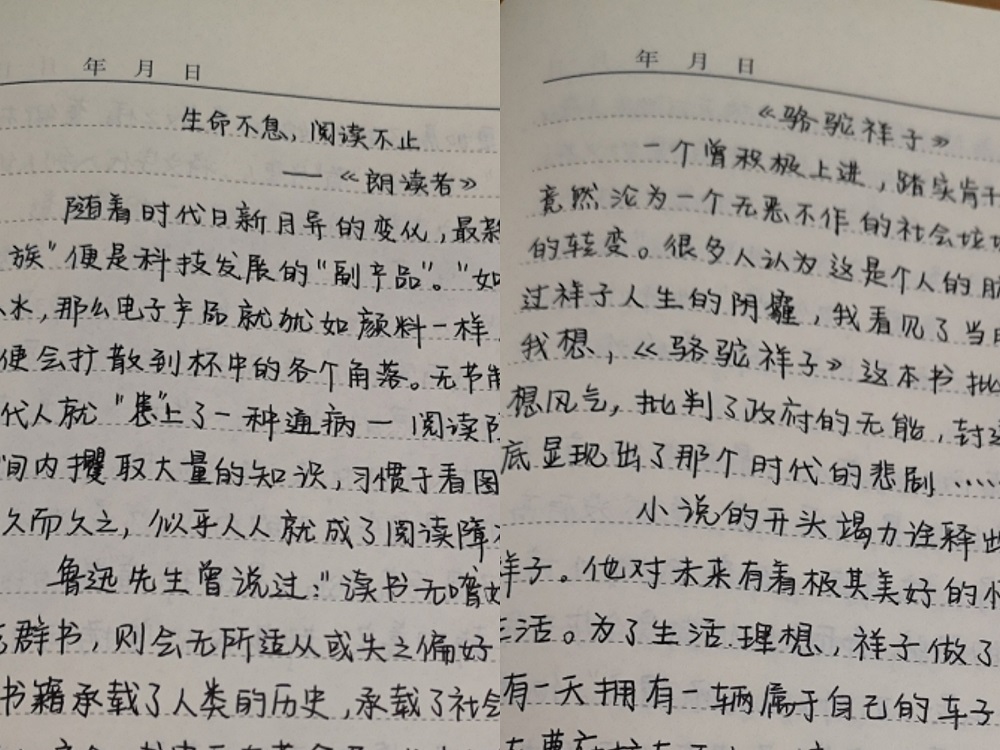 年 月 日
生命不息，阅读不止
——《朗读者》
随着时代日新月异的变化，最新
族"便是科技发展的"副产品"。"如
水，那么电子产品就犹如颜料一样
便会扩散到杯中的各个角落。无节制
代人就"患"上了一种通病一阅读障
间内攫取大量的知识，习惯于看图
久而久之，似乎人人就成了阅读障
鲁迅先生曾说过："读书无嗜好
群书，则会无所适从或失之偏好
书籍承载了人类的历史，承载了社会
年 月 日
《骆驼祥子》
一个曾积极上进，踏实肯干
竟然沦为一个无恶不作的社会垃圾
的转变。很多人认为这是个人的
过祥子人生的阴霾，我看见了当
我想，《骆驼祥子》这本书批
想风气，批判了政府的无能，封建
底显现出了那个时代的悲剧……
小说的开头竭力诠释
祥子。他对未来有着极其美好的
生活。为了生活理想，祥子做了
有一天拥有一辆属于自己的车子